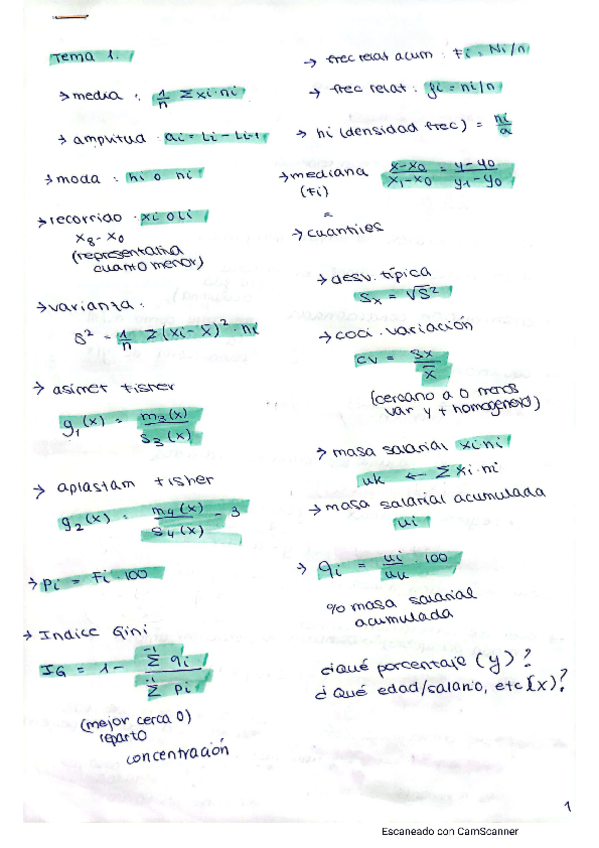 Tema 1.
→ media : 1/n Σxi·ni
→ amplitud · ai = Li - Li-1
→ moda : hi o ni
→ recorrido · xi o Li
x8 - x0
(representativa
cuanto menor)
→ varianza :
S² = 1/n Σ(xi - x̄)²·ni
→ asimet fisher
g1(x) = m3(x)/s3(x)
→ aplastam fisher
g2(x) = m4(x)/s4(x) - 3
→ Pi = Fi·100
→ Indice Gini
IG = 1 - Σ⁻¹ qi / Σ⁻¹ Pi
(mejor cerca 0)
reparto
concentración
→ frec relat acum : Fi = Ni/n
→ frec relat : fi = ni/n
→ hi (densidad frec) = ni/a
→ mediana (x-x0)/(x1-x0) = (y-y0)/(y1-y0)
(Fi)
→ cuantiles
→ desv. típica
Sx = √S²
→ coci. variación
CV = Sx/x̄
(cercano a 0 menos
var y + homogeneid)
→ masa salarial xi ni
uk ← Σxi·ni
→ masa salarial acumulada
ui
→ qi = ui/uk · 100
% masa salarial
acumulada
¿Qué porcentaje (y)?
¿Qué edad/salario, etc (x)?
1
Escaneado con CamScanner